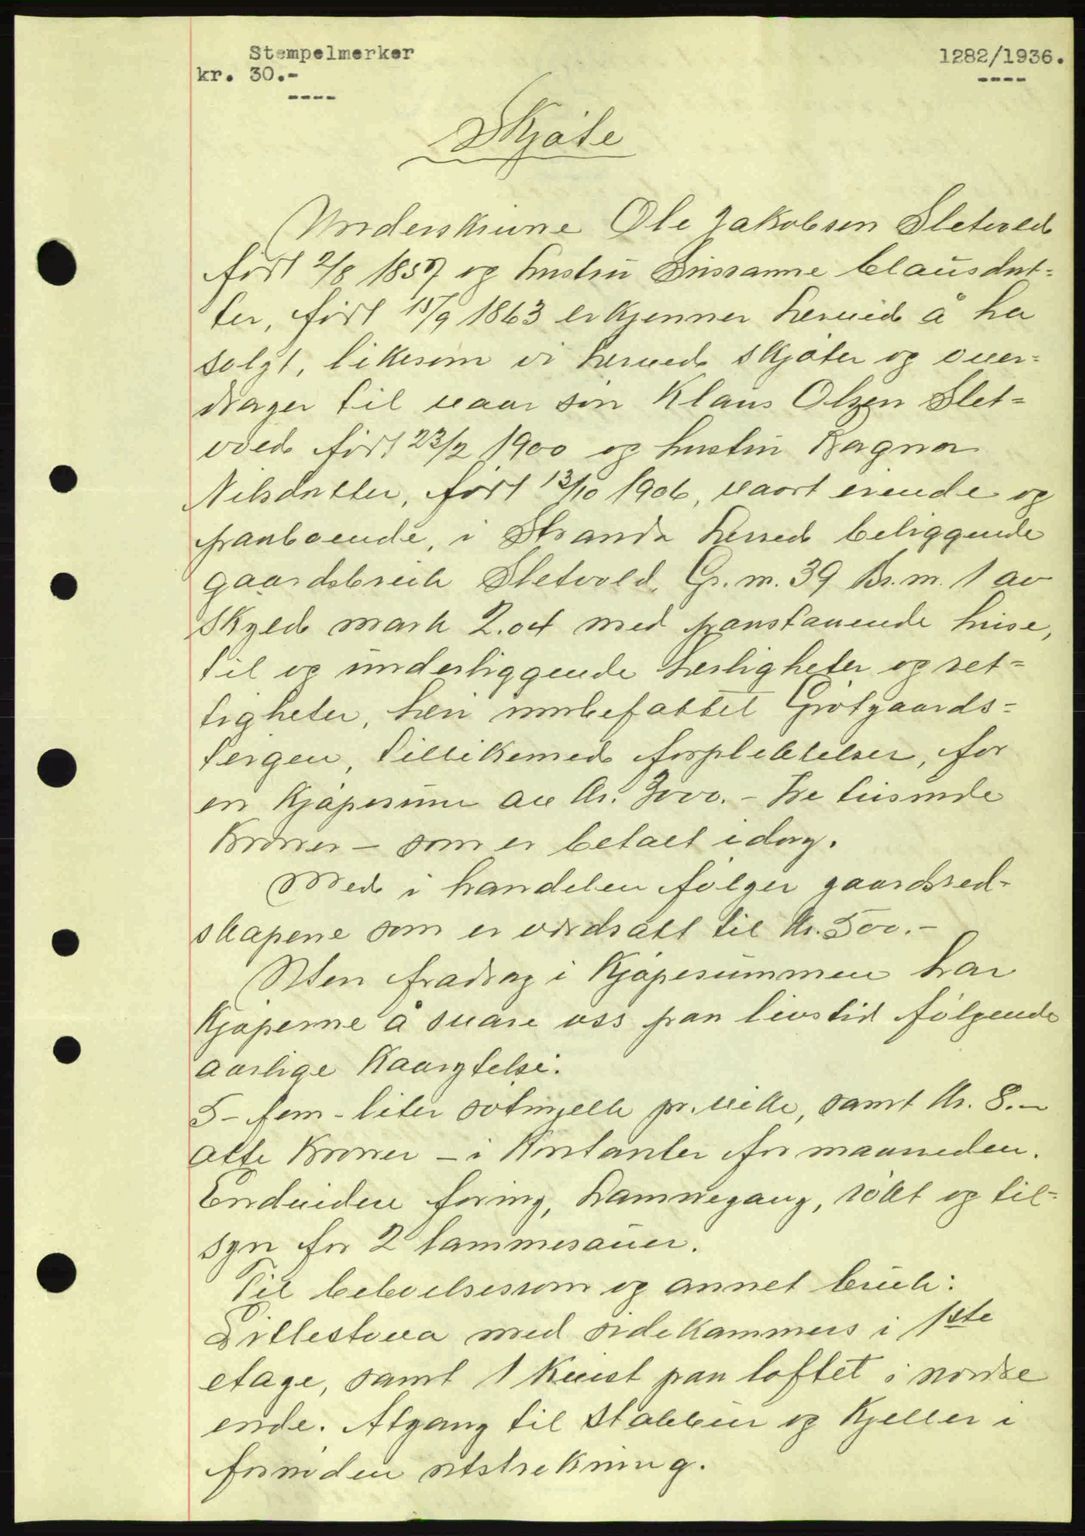 Stempelmerker
kr. 30.-
1282/1936.
Skjøte
Underskrivne Ole Jakobsen Sletvold
født 2/8 1857 og hustru Sussanne Clausdat-
ter, født 15/9 1863 erkjenner herved å ha
solgt, likesom vi herved skjøter og over-
drager til vaar søn Klaus Olsen Slet-
vold født 23/2 1900 og hustru Ragna
Nilsdatter, født 13/10 1906, vaort eiende og
paaboende, i Stranda herred beliggende
gaardsbruk Sletvold, Gr. nr. 39 Br. nr. 1 av
skyld mark 2.04 med paastaaende huse,
til og underliggende herligheter og ret-
tigheter, heri innbefattet Grøtgaards-
teigen, tillikemed forpliktelser, for
en kjøpesum av kr. 3000.- tre tusinde
kroner - som er betalt idag.
Med i handelen følger gaardsred-
skapene som er verdsatt til kr. 500.-
Uten fradrag i kjøpesummen har
kjøperne å svare oss paa livstid følgende
aarlige kaarytelse:
5- fem - liter søtmjelk pr. vike, samt kr. 8.-
atte kroner - i kontanter for maaneden.
Enduidere foring, hamnegang, røkt og til-
syn for 2 lammesauer.
Til beboelsesrom og annet bruk:
Lillestova med sidekammers i 1ste
etage, samt 1 kvist paa loftet i nordre
ende. Atgang til stabbur og kjeller i
fornøden utstrekning.